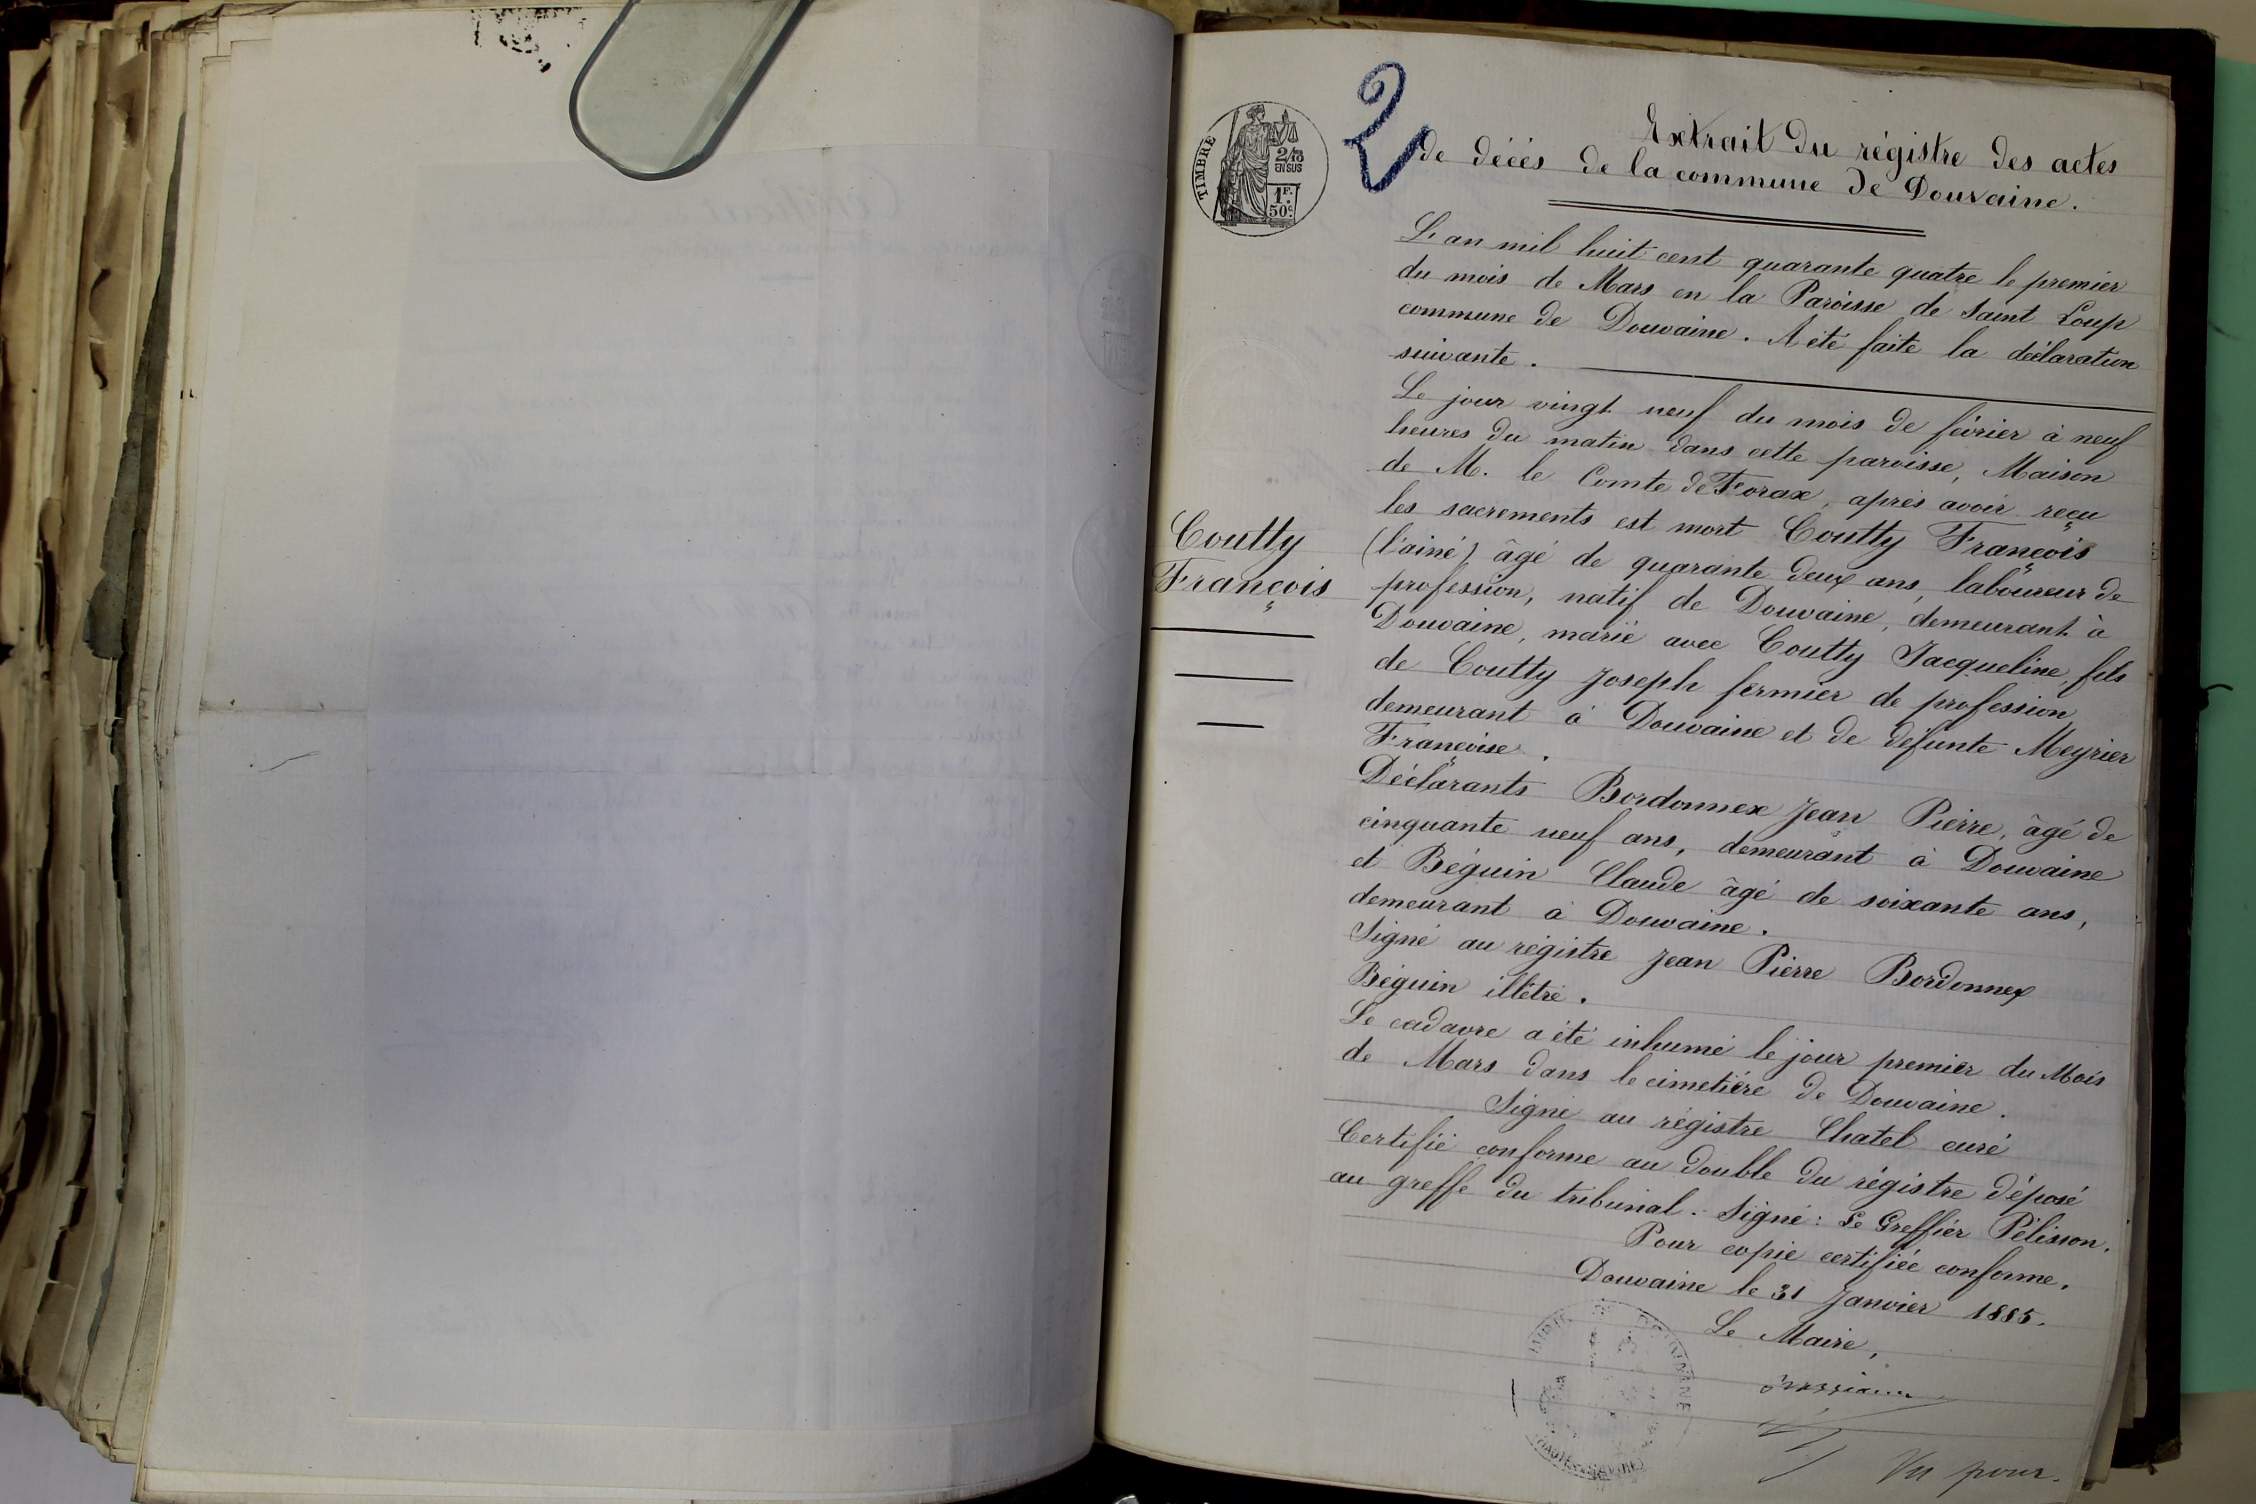 2
TIMBRE
2/10
EN SUS
1F.
50c.
Extrait du régistre des actes
de décés de la commune de Douvaine.
L'an mil huit cent quarante quatre le premier
du mois de Mars en la Paroisse de Saint Loup
commune de Douvaine. A été faite la déclaration
suivante.
Le jour vingt neuf du mois de février à neuf
heures du matin dans cette paroisse, Maison
de M. le Comte de Forax, aprés avoir reçu
les sacrements est mort Coutty François
(l'ainé) âgé de quarante deux ans, laboureur de
profession, natif de Douvaine, demeurant à
Douvaine, marié avec Coutty Jacqueline, fils
de Coutty Joseph fermier de profession
demeurant à Douvaine et de défunte Meyrier
Françoise.
Coutty
François
Déclarants Bordonnex Jean Pierre, âgé de
cinquante neuf ans, demeurant à Douvaine
et Béguin Claude âgé de soixante ans,
demeurant à Douvaine.
Signé au régistre Jean Pierre Bordonnex
Béguin illétré.
Le cadavre a été inhumé le jour premier du Mois
de Mars dans le cimetiére de Douvaine.
Signé au régistre Chatel curé
Certifié conforme au double du régistre déposé
au greffe du tribunal. Signé: Le Greffier Pélisson.
Pour copie certifiée conforme.
Douvaine le 31 Janvier 1885.
Le Maire,
Vu pour.